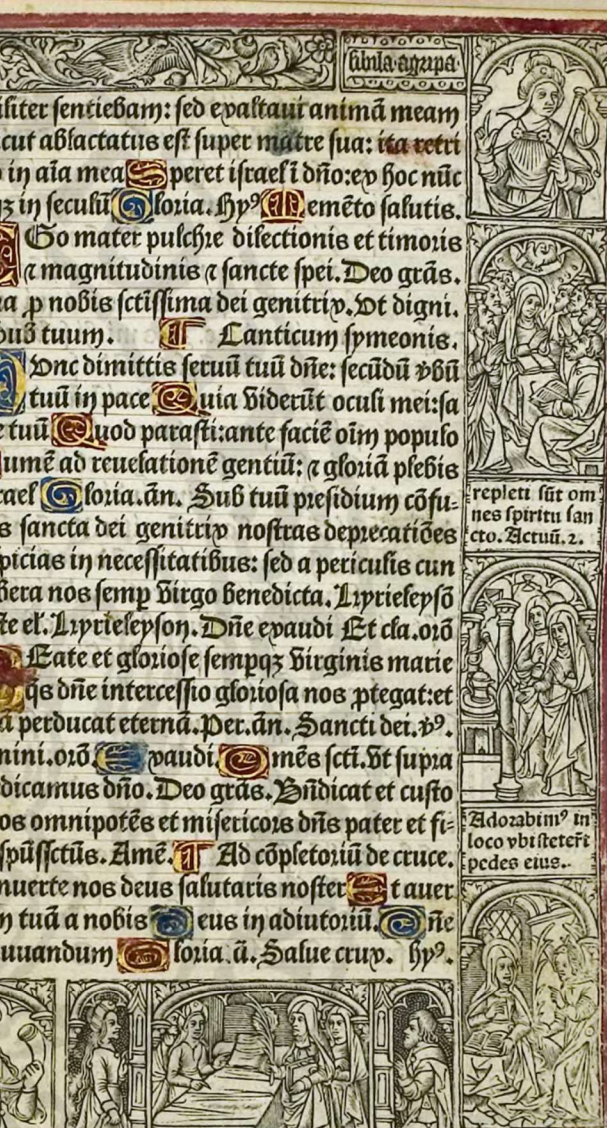 sibila agripa
iliter sentiebam: sed exaltaui animā meam
cut ablactatus est super matre sua: ita retri
o in aīa mea Speret israel ī dño:ex hoc nūc
qz in seculū Gloria. Hyꝰ Memēto salutis.
Ego mater pulchre dilectionis et timoris
⁊ magnitudinis ⁊ sancte spei. Deo grās.
a ꝓ nobis sctīssima dei genitrix. Vt digni.
bū tuum. ¶ Canticum symeonis.
Nvnc dimittis seruū tuū dñe: secūdū ꝟbū
tuū in pace Quia viderūt oculi mei:sa
e tuū Quod parasti:ante faciē oīm populo
umē ad reuelationē gentiū: ⁊ gloriā plebis
rael Gloria.ān. Sub tuū presidium cōfu-
s sancta dei genitrix nostras deprecatiōes
picias in necessitatibus: sed a periculis cun
bera nos semꝑ virgo benedicta. Kyrieleysō
ste el. Kyrieleyson. Dñe exaudi Et cla.orō
Beate et gloriose semꝑqz virginis marie
qs dñe intercessio gloriosa nos ꝓtegat:et
ā perducat eternā. Per.ān. Sancti dei.ꝟꝰ.
mini.orō. Exaudi. Omēs sctī. Vt supra
dicamus dño. Deo grās. Bñdicat et custo
os omnipotēs et misericors dñs pater et fi-
spūssctūs. Amē. ¶ Ad cōpletoriū de cruce.
nuerte nos deus salutaris noster Et auer
m tuā a nobis Deus in adiutoriū. Dñe
uuandum Gloria.ā. Salue crux. hyꝰ.
repleti sūt om
nes spiritu san
cto. Actuū. 2.
Adorabimꝰ in
loco vbi steterūt
pedes eius.